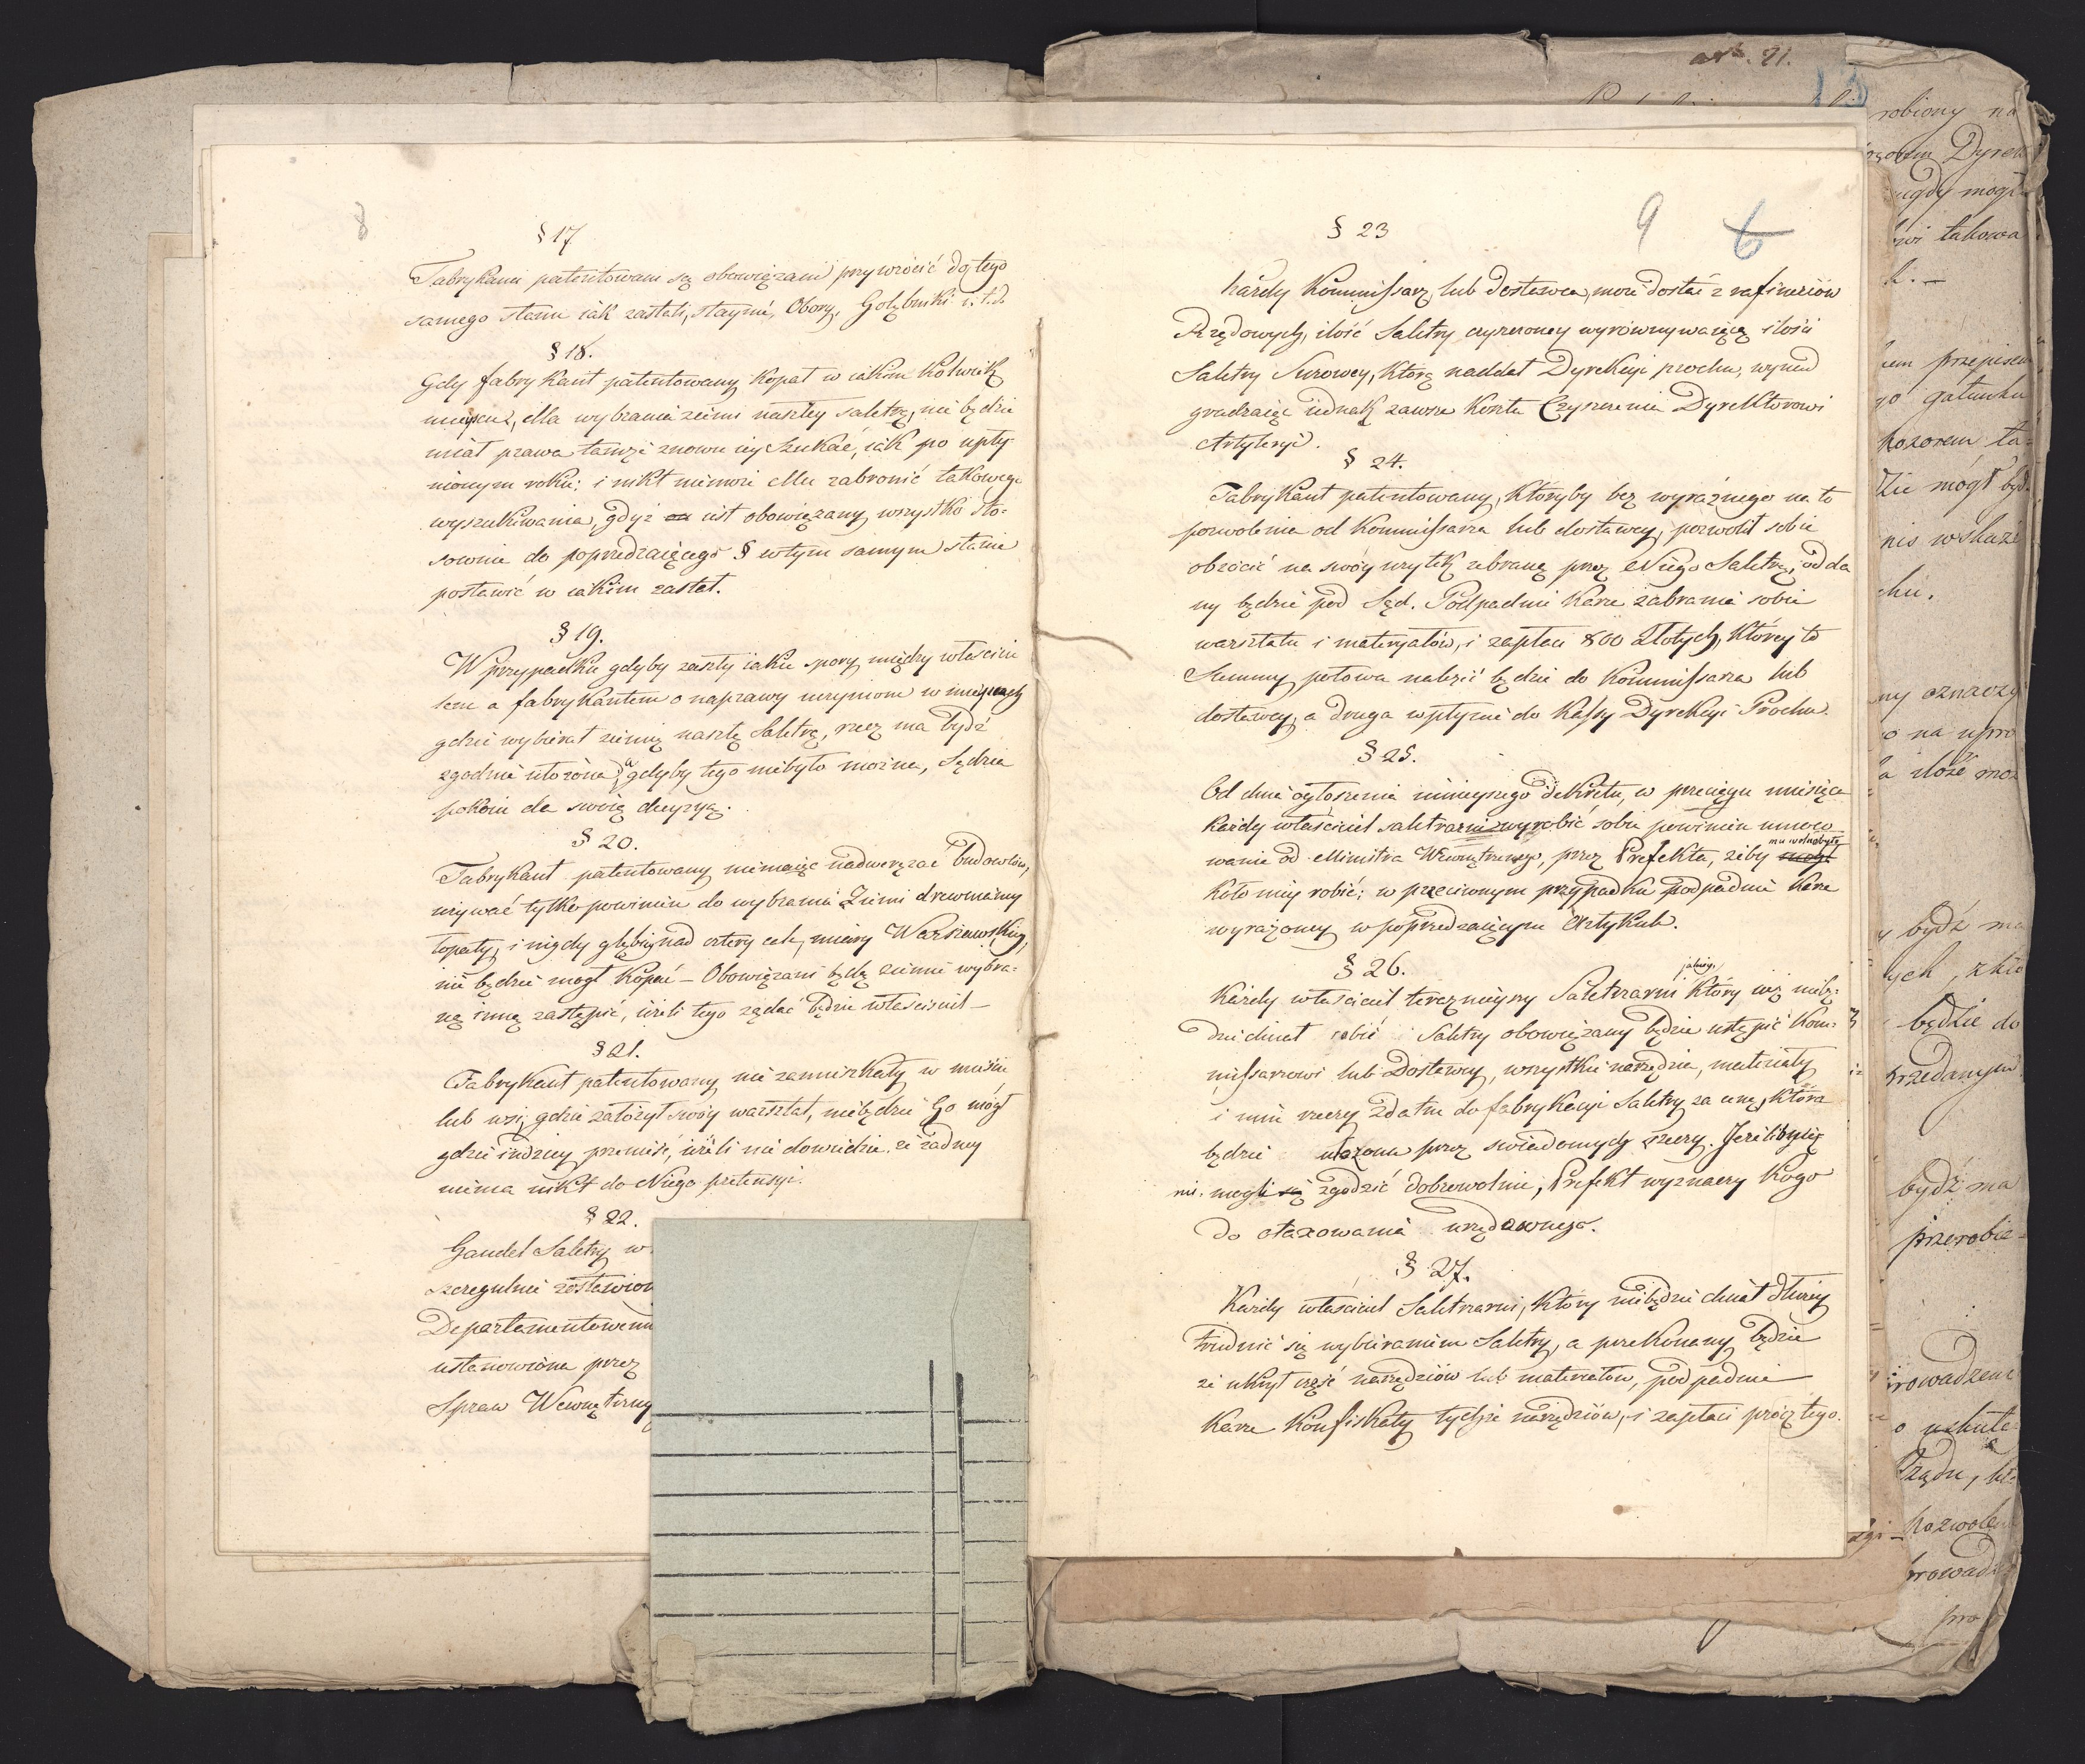 8
§ 17
Fabrykanci patentowani są obowiązani przywrócić do tego
samego stanu iak zastali, staynie, Obory, Gołębniki i.t.d.
§ 18.
Gdy fabrykant patentowany kopał w iakim kolwiek
mieyscu, dla wybrania ziemi naszłey saletrą, nie będzie
miał prawa tamże znowu iey szukać, iak po upły-
nionym roku; i nikt niemoże Mu zabronić takowego
wyszukiwania, gdyż on iest obowiązany wszystko sto-
sownie do poprzedzaiącego § w tym samym stanie
postawić w iakim zastał.
§ 19.
W przypadku gdyby zaszły iakie spory między właścicie
lem a fabrykantem o naprawy uczynione w mieyscach
gdzie wybierał ziemię naszłą Saletrą, rzecz ma bydź
zgodnie ułożona, a gdyby tego niebyło można, Sędzia
pokoiu da swoią decyzyą.
§ 20.
Fabrykant patentowany niemaiąc nadwerężać budowlów,
używać tylko powinien do wybrania Ziemi drewnianey
łopaty, i nigdy głębiey nad cztery cale, miary Warszawskiey,
nie będzie mogł kopać – Obowiązani będą ziemie wybra-
ną inną zastąpić, ieżeli tego żądać będzie właściciel –
§ 21.
Fabrykant patentowany nie zamieszkały w mieście
lub wsi, gdzie założył swóy warsztat, niebędzie Go mógł
gdzie indziey przenieść, ieżeli nie dowiedzie, że żadney
niema nikt do Niego pretensyi.
§ 22.
Handel Saletry w
szczegulnie zostawion
Departamentowemu
ustanowiona przez
Spraw Wewnętrzny
art. 21.
9 6
§ 23
każdy Kommissarz, lub dostawca, może dostać z rafineriów
Rządowych, ilość Saletry czyszczoney wyrównywaiącą ilości
Saletry Surowey, którą naddał Dyrekcyi prochu, wynad
gradzaiąc iednak zawsze koszta Czyszczenia Dyrektorowi
Artyleryi.
§ 24.
Fabrykant patentowany, któryby bez wyraźnego na to
pozwolenia od Kommissarza lub dostawcy, pozwolił sobie
obrócić na swóy użytek zebraną przez Niego Saletrę, odda
ny będzie pod Sąd. Podpadnie karze zabrania sobie
warsztatu i materyałów, i zapłaci 800 Złotych, którey to
Summy połowa należeć będzie do Kommissarza lub
dostawcy, a druga wpłynie do Kassy Dyrekcyi Prochu.
§ 25.
Od dnia ogłoszenia ninieyszego dekretu, w przeciągu miesiąca
każdy właściciel saletrarni wyrobić sobie powinien umoco
wanie od Ministra Wewnętrznego, przez Prefekta, żeby mu wolno było
koło niey robić; w przeciwnym przypadku podpadnie karze
wyrażoney w poprzedzaiącym Artykule.
§ 26.
Każdy właściciel teraznieyszy Saletrarni który iuż niebę-
dzie chciał robić Saletry obowiązany będzie ustąpić Kom-
missarzowi lub Dostawcy, wszystkie narzędzia, materiały
i inne rzeczy zdatne do fabrykacyi Saletry za cenę, która
będzie ułożona przez świadomych rzeczy. Jeżeliby się
nie mogli się zgodzić dobrowolnie, Prefekt wyznaczy kogo
do otaxowania urzędownego.
§ 27.
Każdy właściciel Saletrarni, który niebędzie chciał dłużey
trudnić się wybieraniem Saletry, a przekonany będzie
że ukrył część narzędziów lub materiałów, podpadnie
karze konfiskaty tychże narzędziów, i zapłaci prócz tego.
robiony na
Dyrek
mogł
takowa
przepisem
gatunku
dozorem ta-
mógł być
wskaże
chu.
oznaczy
o na upro
ilość moż
bydź ma
będzie do
przedanym
bydź ma
przerobie-
rowadzeni
o uskute-
Rządu,
pozwolen
pro